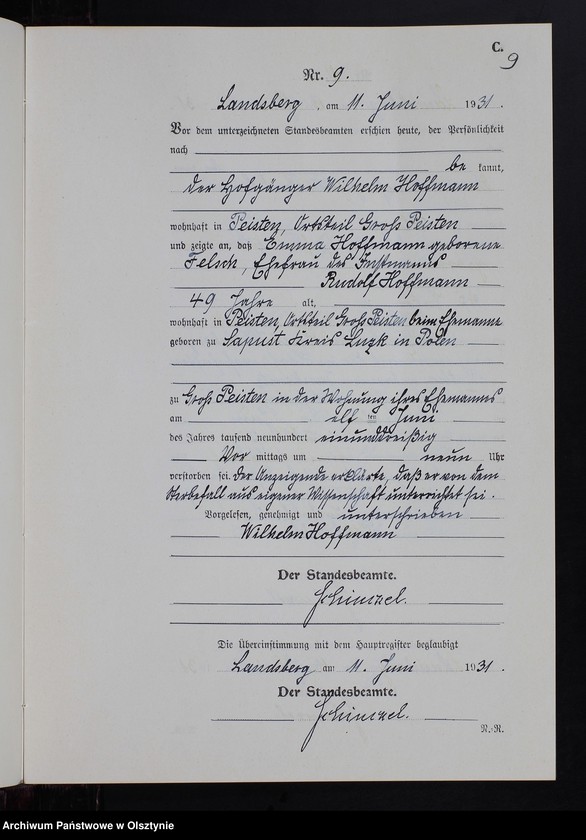 C.
9
Nr. 9.
Landsberg, am 11. Juni 1931.
Vor dem unterzeichneten Standesbeamten erschien heute, der Persönlichkeit
nach
be kannt,
der Hofgänger Wilhelm Hoffmann
wohnhaft in Peisten, Ortsteil Groß Peisten
und zeigte an, daß Emma Hoffmann geborene
Felsch, Ehefrau des Instmanns
Rudolf Hoffmann
49 Jahre alt,
wohnhaft in Peisten, Ortsteil Groß Peisten beim Ehemanne
geboren zu Sapust Kreis Luzk in Polen
zu Groß Peisten in der Wohnung ihres Ehemannes
am elf ten Juni
des Jahres tausend neunhundert einunddreißig
Vor mittags um neun Uhr
verstorben sei. Der Anzeigende erklärte, daß er von dem
Sterbefall aus eigener Wissenschaft unterrichtet sei.
Vorgelesen, genehmigt und unterschrieben
Wilhelm Hoffmann
Der Standesbeamte.
Schinzel.
Die Übereinstimmung mit dem Hauptregister beglaubigt
Landsberg am 11. Juni 1931.
Der Standesbeamte.
Schinzel.
N.-R.
Archiwum Państwowe w Olsztynie